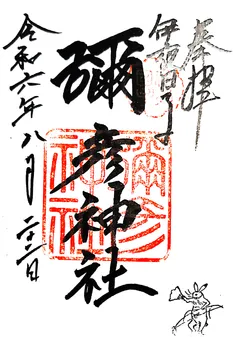 奉拝
伊夜日子
彌彦神社
彌彦
神社
令和六年八月二十二日